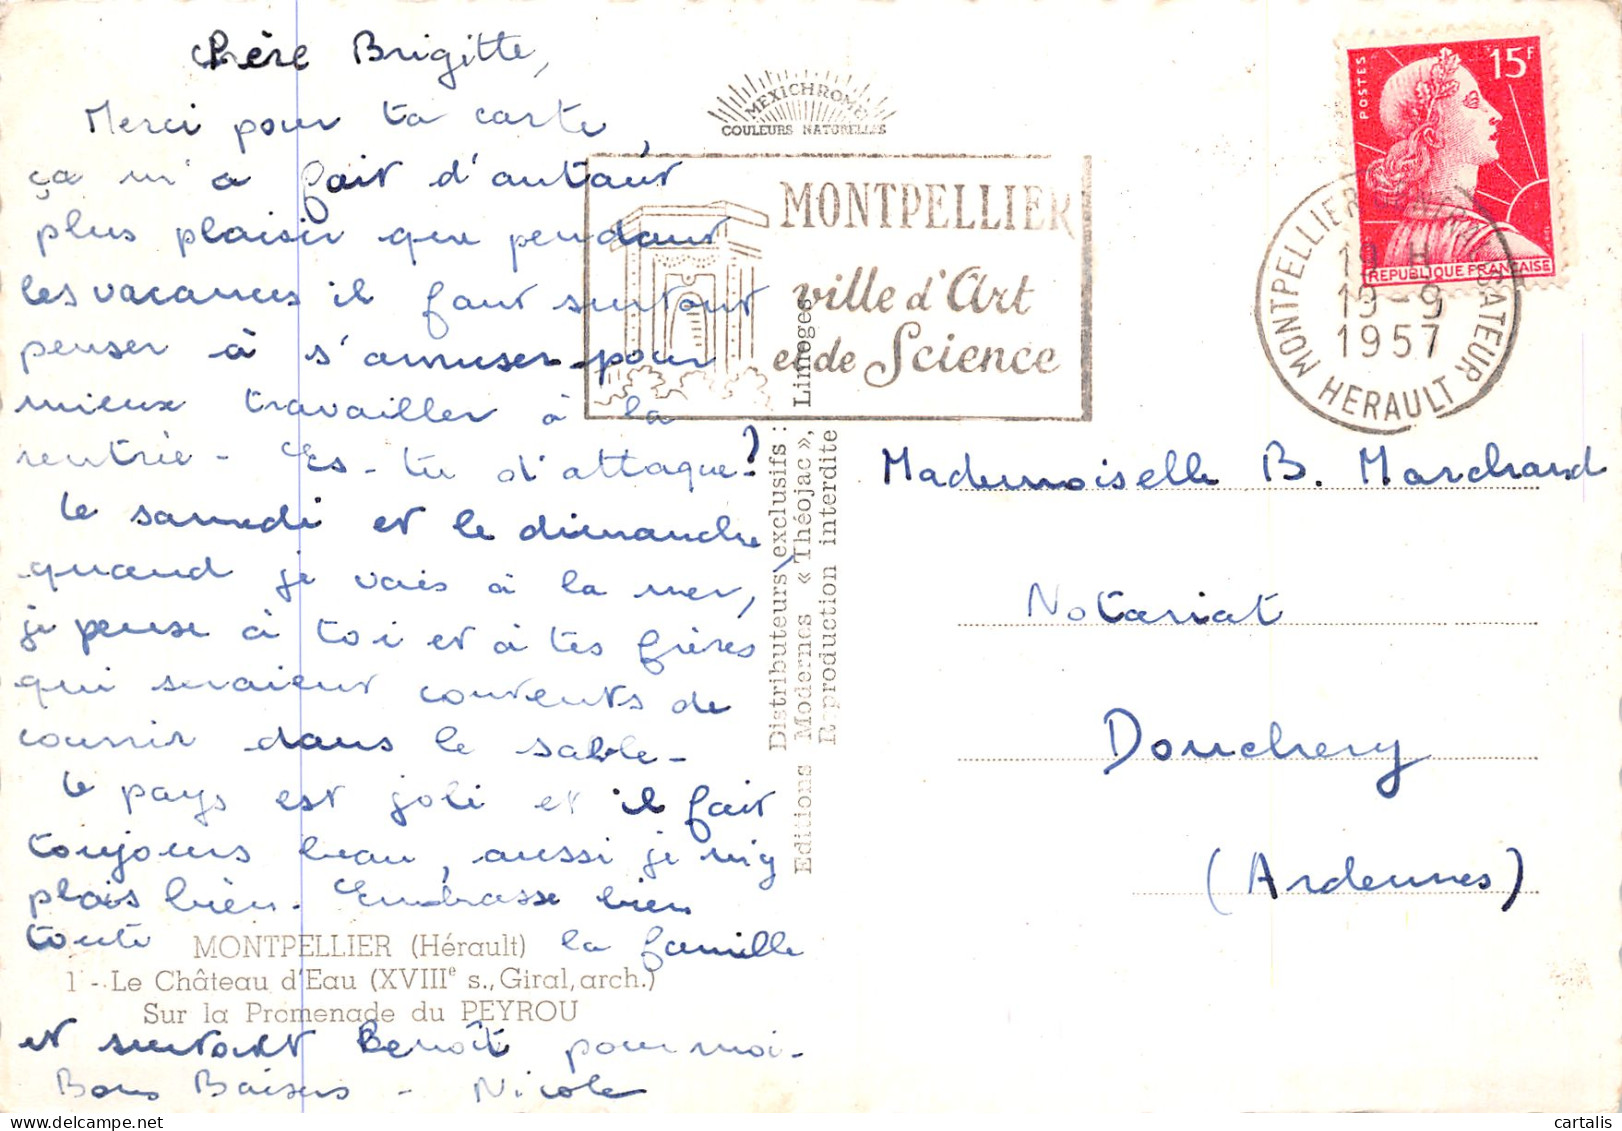 Chère Brigitte,
Merci pour ta carte,
ça m'a fait d'autant
plus plaisir que pendant
les vacances il faut surtout
penser à s'amuser pour
mieux travailler à la
rentrée - Es-tu d'attaque?
Le samedi et le dimanche
quand je vais à la mer,
je pense à toi et à tes frères
qui seraient contents de
courir dans le sable -
Le pays est joli et il fait
toujours beau, aussi je m'y
plais bien. Embrasse bien
toute la famille
et surtout Benoît pour moi -
Bons Baisers - Nicole
MONTPELLIER (Hérault)
1 - Le Château d'Eau (XVIIIe s., Giral, arch.)
Sur la Promenade du PEYROU
MEXICHROME
COULEURS NATURELLES
MONTPELLIER
ville d'Art
et de Science
Distributeurs exclusifs :
Editions Modernes « Théojac », Limoges
Reproduction interdite
POSTES
15F
REPUBLIQUE FRANÇAISE
MONTPELLIER GARE
HERAULT
19 H
19-9
1957
Mademoiselle B. Marchand
Notariat
Donchery
(Ardennes)
cartalis